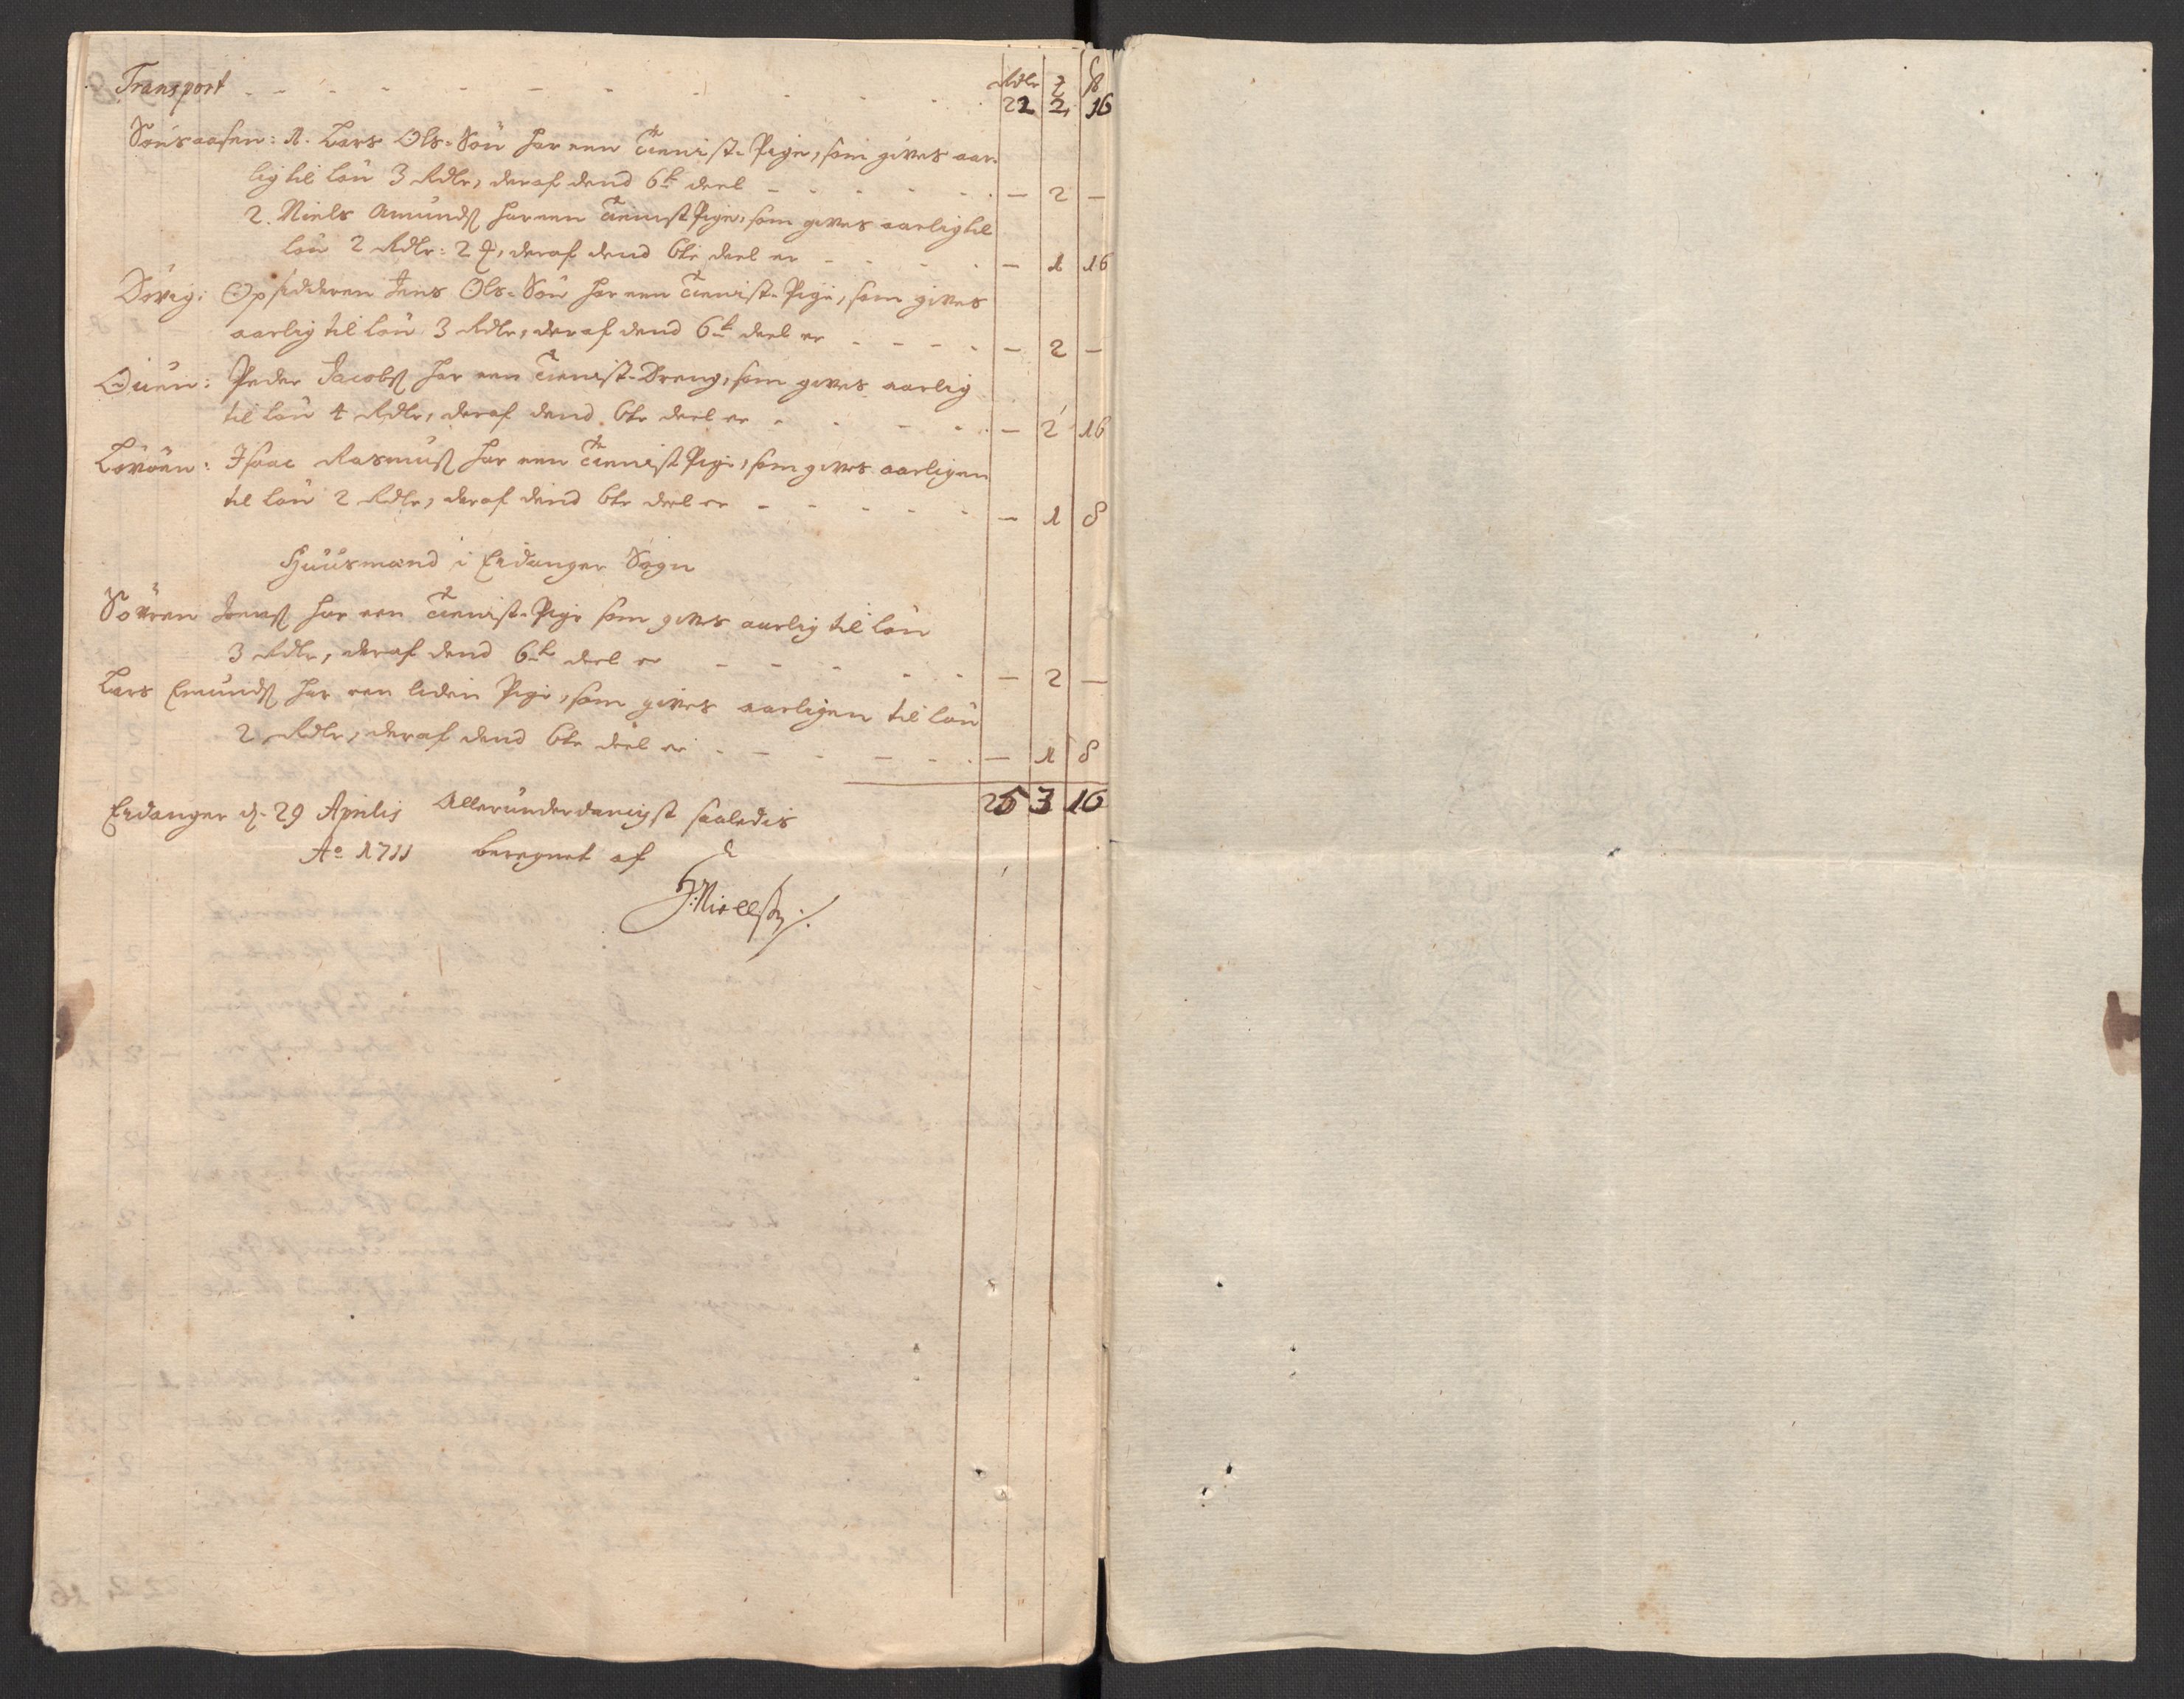 Transport - - - - - - - - - Rdlr ꝣ ß
22 2 16
Sönsaasen: 1. Lars Ols-Søn har een tienist-Pige, som gives aar-
lig til løn 3 Rdlr, deraf dend 6te deel - - - - - 2 -
2. Niels Amundß har een tienist Pige, som gives aarlig til
løn 2 Rdlr: 2 ꝣ, deraf dend 6te deel er - - - - 1 16
Døvig: Opsidderen Jens Ols-Søn har een tienist-Pige, som gives
aarlig til løn 3 Rdlr, deraf dend 6te deel er - - - - 2 -
Öien: Peder Jacobß har een tienist-Dreng, som gives aarlig
til løn 4 Rdlr, deraf dend 6te deel er - - - - 2 16
Løvöen: Isaac Rasmusß har een tienist Pige, som gives aarligen
til løn 2 Rdlr, deraf dend 6te deel er - - - - - 1 8
Huusmænd i Eidanger Sogn
Søvren Jensß har een tienist-Pige som gives aarlig til løn
3 Rdlr, deraf dend 6te deel er - - - - - 2 -
Lars Emundß har een liden Pige, som gives aarligen til løn
2 Rdlr, deraf dend 6te deel er - - - - - 1 8
25 3 16
Eidanger d. 29 Aprilis Allerunderdanigst saaledis
Ao 1711 beregnet af
H: Nielssøn